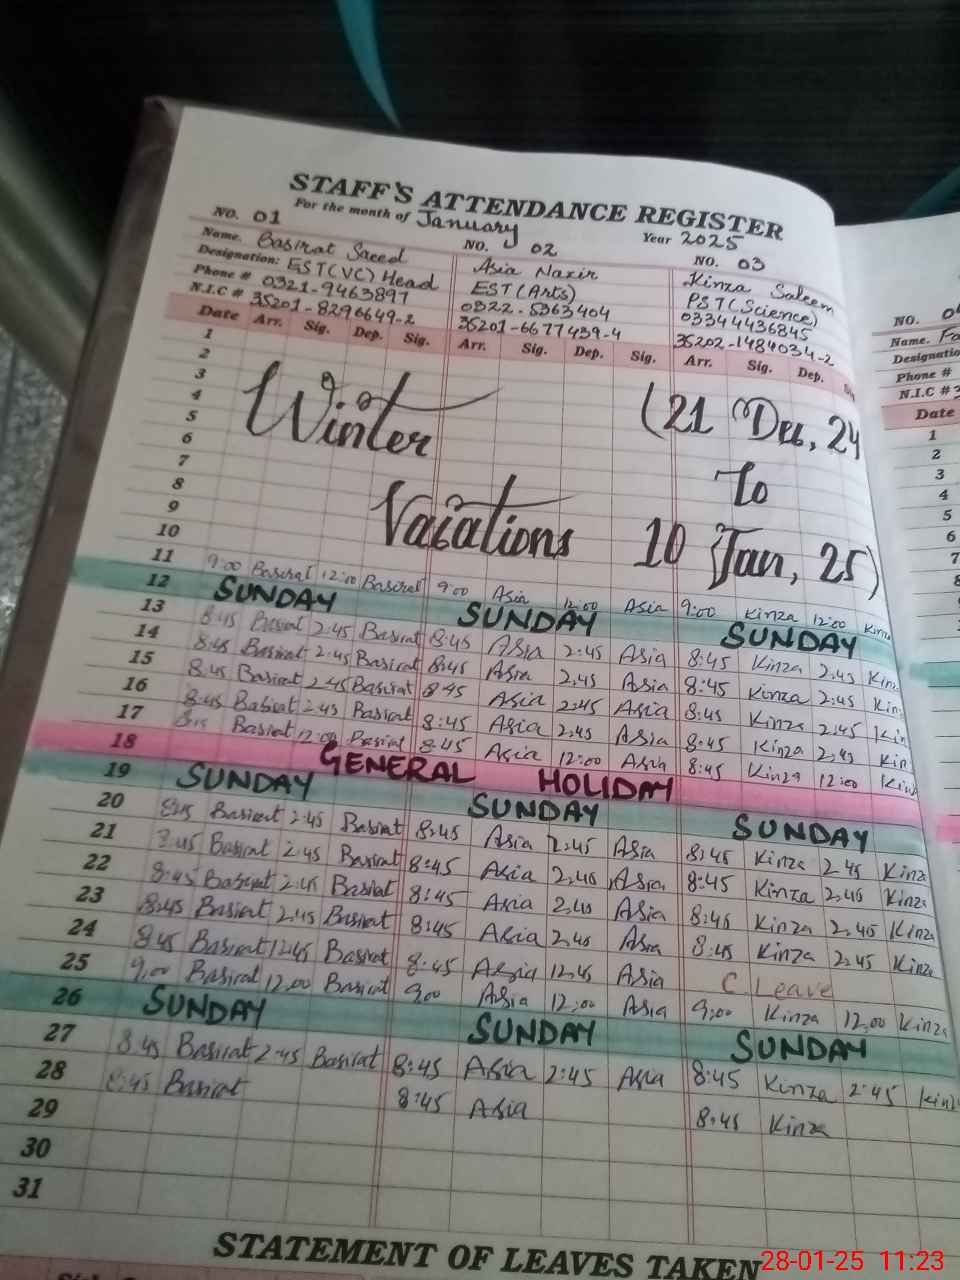 STAFF'S ATTENDANCE REGISTER
For the month of January Year 2025
NO. 01 NO. 02 NO. 03
Name. Basirat Saeed Asia Nazir Kinza Saleem
Designation: EST(VC) Head EST(Arts) PST(Science)
Phone # 0321-9463897 0322-5363404 03344436845
N.I.C # 35201-8296649-2 35201-6677439-4 35202-1484034-2
Date Arr. Sig. Dep. Sig. Arr. Sig. Dep. Sig. Arr. Sig. Dep.
1
2
3
4
5
6
7
8
9
10
Winter (21 Dec, 24
To
Vacations 10 Jan, 25)
11 9:00 Basirat 12:00 Basirat 9:00 Asia 12:00 Asia 9:00 Kinza 12:00 Kinza
12 SUNDAY SUNDAY SUNDAY
13 8:45 2:45 Basirat 8:45 Asia 2:45 Asia 8:45 Kinza 2:45 Kinz
14 8:45 Basirat 2:45 Basirat 8:45 Asia 2:45 Asia 8:45 Kinza 2:45 Kin
15 8:45 Basirat 2:45 Basirat 8:45 Asia 2:45 Asia 8:45 Kinza 2:45 Kin
16 8:45 Basirat 2:45 Basirat 8:45 Asia 2:45 Asia 8:45 Kinza 2:45 Kin
17 Basirat 12:00 Basirat 8:45 Asia 12:00 Asia 8:45 Kinza 12:00 Kinz
18 GENERAL HOLIDAY
19 SUNDAY SUNDAY SUNDAY
20 8:45 Basirat 2:45 Basirat 8:45 Asia 2:45 Asia 8:45 Kinza 2:45 Kinza
21 8:45 Basirat 2:45 Basirat 8:45 Asia 2:40 Asia 8:45 Kinza 2:40 Kinza
22 8:45 Basirat 2:45 Basirat 8:45 Asia 2:40 Asia 8:45 Kinza 2:40 Kinza
23 8:45 Basirat 2:45 Basirat 8:45 Asia 2:40 Asia 8:45 Kinza 2:45 Kinza
24 8:45 Basirat 12:45 Basirat 8:45 Asia 12:45 Asia C Leave
25 9:00 Basirat 12:00 Basirat 9:00 Asia 12:00 Asia 9:00 Kinza 12:00 Kinza
26 SUNDAY SUNDAY SUNDAY
27 8:45 Basirat 2:45 Basirat 8:45 Asia 2:45 Asia 8:45 Kinza 2:45 Kinz
28 8:45 Basirat 8:45 Asia 8:45 Kinza
29
30
31
STATEMENT OF LEAVES TAKEN
NO.
Name. Fa
Designatio
Phone #
N.I.C #
Date
1
2
3
4
5
6
7
28-01-25 11:23